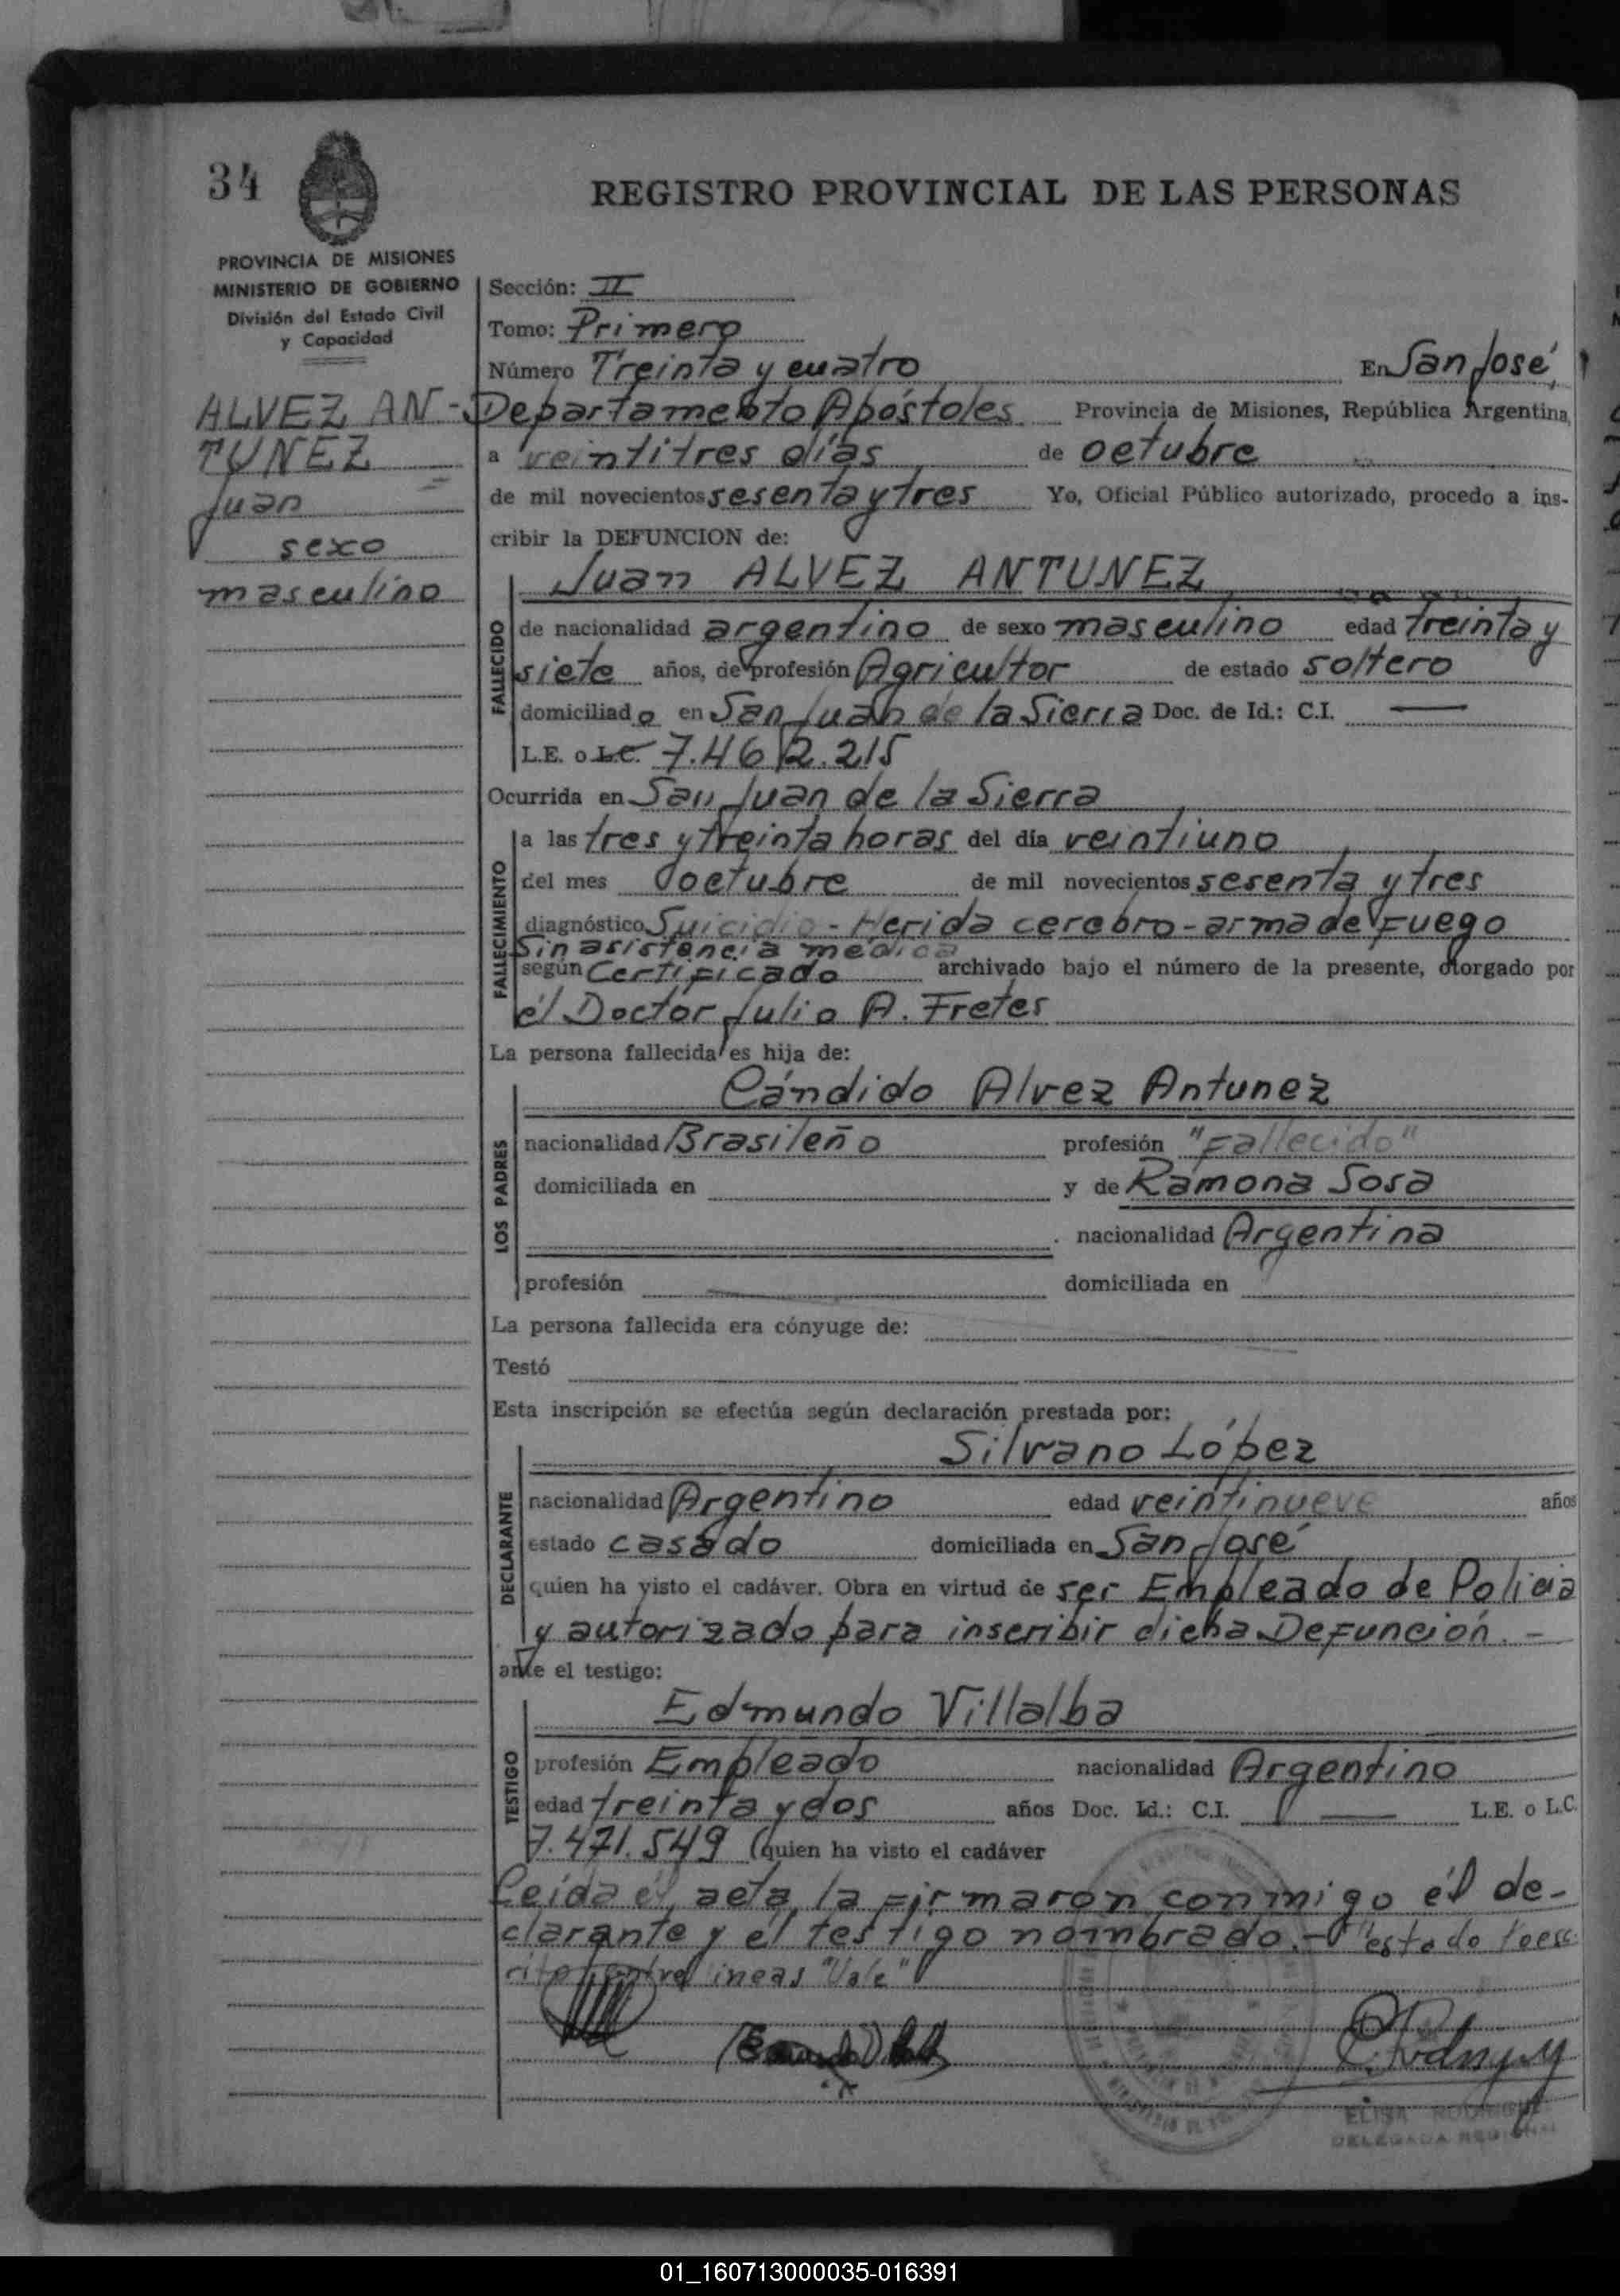 34
REGISTRO PROVINCIAL DE LAS PERSONAS
PROVINCIA DE MISIONES
MINISTERIO DE GOBIERNO
División del Estado Civil
y Capacidad
ALVEZ AN-
TUNEZ
Juan
sexo
masculino
Sección: II
Tomo: Primero
Número Treinta y cuatro En San José,
Departamento Apóstoles. Provincia de Misiones, República Argentina,
a veintitres días de octubre
de mil novecientos sesenta y tres Yo, Oficial Público autorizado, procedo a ins-
cribir la DEFUNCION de:
Juan ALVEZ ANTUNEZ
FALLECIDO
de nacionalidad argentino de sexo masculino edad treinta y
siete años, de profesión Agricultor de estado soltero
domiciliado en San Juan de la Sierra Doc. de Id.: C.I. —
L.E. o L.C. 7.462.215
Ocurrida en San Juan de la Sierra
FALLECIMIENTO
a las tres y treinta horas del día veintiuno
del mes octubre de mil novecientos sesenta y tres
diagnóstico Suicidio - Herida cerebro - arma de Fuego
Sin asistencia médica
según Certificado archivado bajo el número de la presente, otorgado por
él Doctor Julio A. Fretes
La persona fallecida es hija de:
LOS PADRES
Cándido Alvez Antunez
nacionalidad Brasileño profesión "Fallecido"
domiciliada en y de Ramona Sosa
nacionalidad Argentina
profesión domiciliada en
La persona fallecida era cónyuge de:
Testó
Esta inscripción se efectúa según declaración prestada por:
DECLARANTE
Silvano López
nacionalidad Argentino edad veintinueve años
estado casado domiciliada en San José
quien ha visto el cadáver. Obra en virtud de ser Empleado de Policia
y autorizado para inscribir dicha Defunción. -
ante el testigo:
TESTIGO
Edmundo Villalba
profesión Empleado nacionalidad Argentino
edad treinta y dos años Doc. Id.: C.I. — L.E. o L.C.
7.471.549 (quien ha visto el cadáver
Leída él acta, la firmaron conmigo él de-
clarante y él testigo nombrado.-
entre lineas "Vale"
ELISA
DELEGADA REGIONAL
01_160713000035-016391